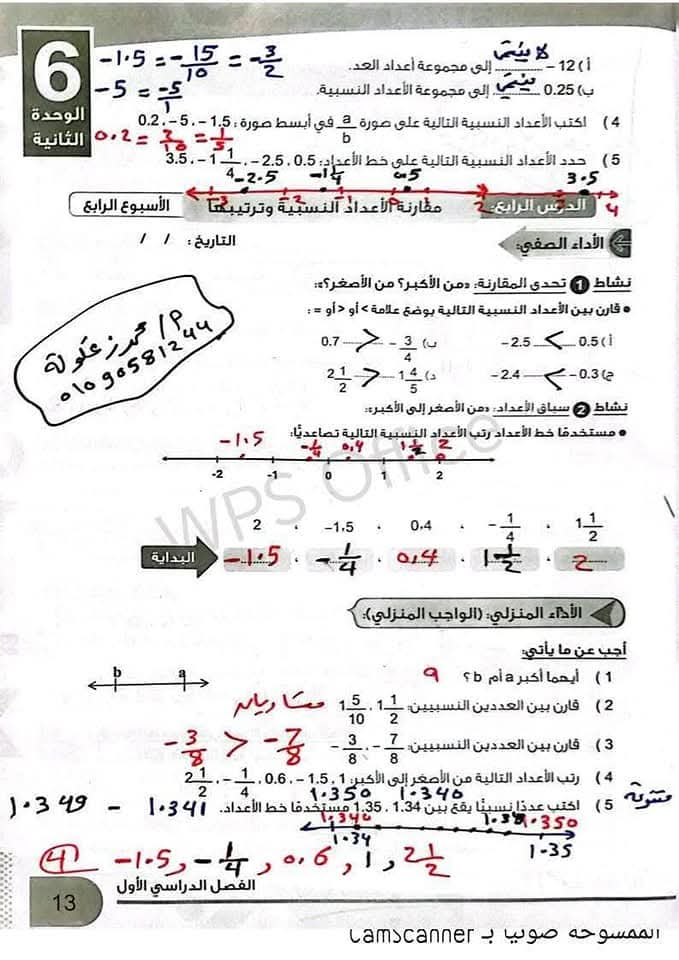 6
الوحدة
الثانية
-1.5 = -15/10 = -3/2
-5 = -5/1
0.2 = 2/10 = 1/5
أ ) 12 – لا ينتمي إلى مجموعة أعداد العد.
ب) 0.25 ينتمي إلى مجموعة الأعداد النسبية.
4 ) اكتب الأعداد النسبية التالية على صورة a/b في أبسط صورة : 1.5- ، 5- ، 0.2
5 ) حدد الأعداد النسبية التالية على خط الأعداد: 0.5 ، 2.5- ، 1 1/4- ، 3.5
-3 -2.5 -2 -1 1/4 -1 0 0.5 1 2 3 3.5 4
الدرس الرابع: مقارنة الأعداد النسبية وترتيبها الأسبوع الرابع
الأداء الصفي: التاريخ: / /
نشاط 1 تحدي المقارنة: «من الأكبر؟ من الأصغر؟»:
• قارن بين الأعداد النسبية التالية بوضع علامة > أو < أو = :
أ ) 0.5 > -2.5 ب) -3/4 < 0.7
ج) -0.3 > -2.4 د) 1 4/5 < 2 1/2
م / محمد زعلولة
01090581244
نشاط 2 سباق الأعداد: «من الأصغر إلى الأكبر:
• مستخدمًا خط الأعداد رتب الأعداد النسبية التالية تصاعديًا:
-1.5 -1/4 0.4 1 1/2 2
-2 -1 0 1 2
WPS Office
2 ، -1.5 ، 0.4 ، -1/4 ، 1 1/2
البداية -1.5 ، -1/4 ، 0.4 ، 1 1/2 ، 2
الأداء المنزلي: (الواجب المنزلي):
أجب عن ما يأتي:
b a
1 ) أيهما أكبر a أم b ؟ a
2 ) قارن بين العددين النسبيين: 1 1/2 ، 1 5/10 متساويان
3 ) قارن بين العددين النسبيين: -7/8 ، -3/8
-3/8 > -7/8
4 ) رتب الأعداد التالية من الأصغر إلى الأكبر: 1 ، 1.5- ، 0.6 ، 1/4- ، 2 1/2
1.350 1.340
5 ) اكتب عددًا نسبيًا يقع بين 1.34 ، 1.35 مستخدمًا خط الأعداد.
1.341 - 1.349
1.340 1.350
1.34 1.35
4 -1.5, -1/4, 0.6, 1, 2 1/2
الفصل الدراسي الأول
13
الممسوحة ضوئيا بـ CamScanner